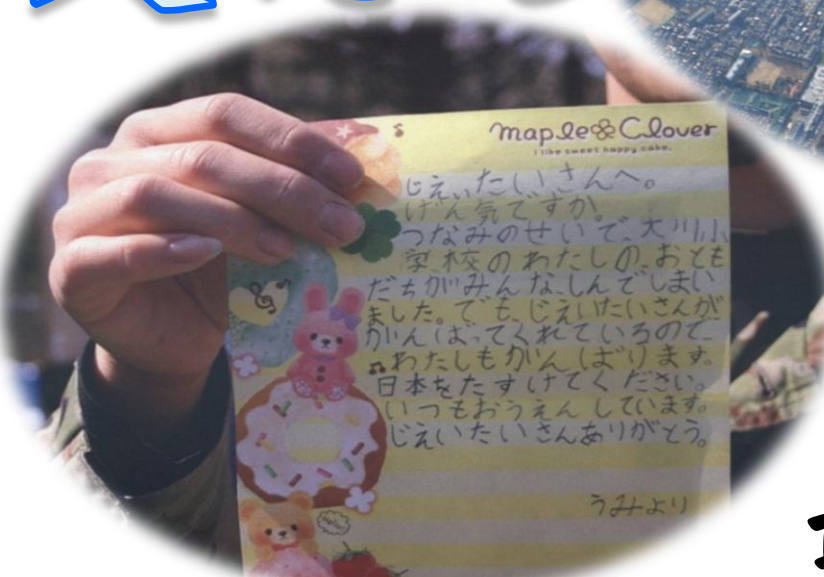 maple Clover
I like sweet happy cake.
じえいたいさんへ。
げん気ですか。
つなみのせいで、大川小
学校のわたしの、おとも
だちがみんな、しんでしまい
ました。でも、じえいたいさんが
がんばってくれているので
わたしもがんばります。
日本をたすけてください。
いつもおうえんしています。
じえいたいさんありがとう。
うみより